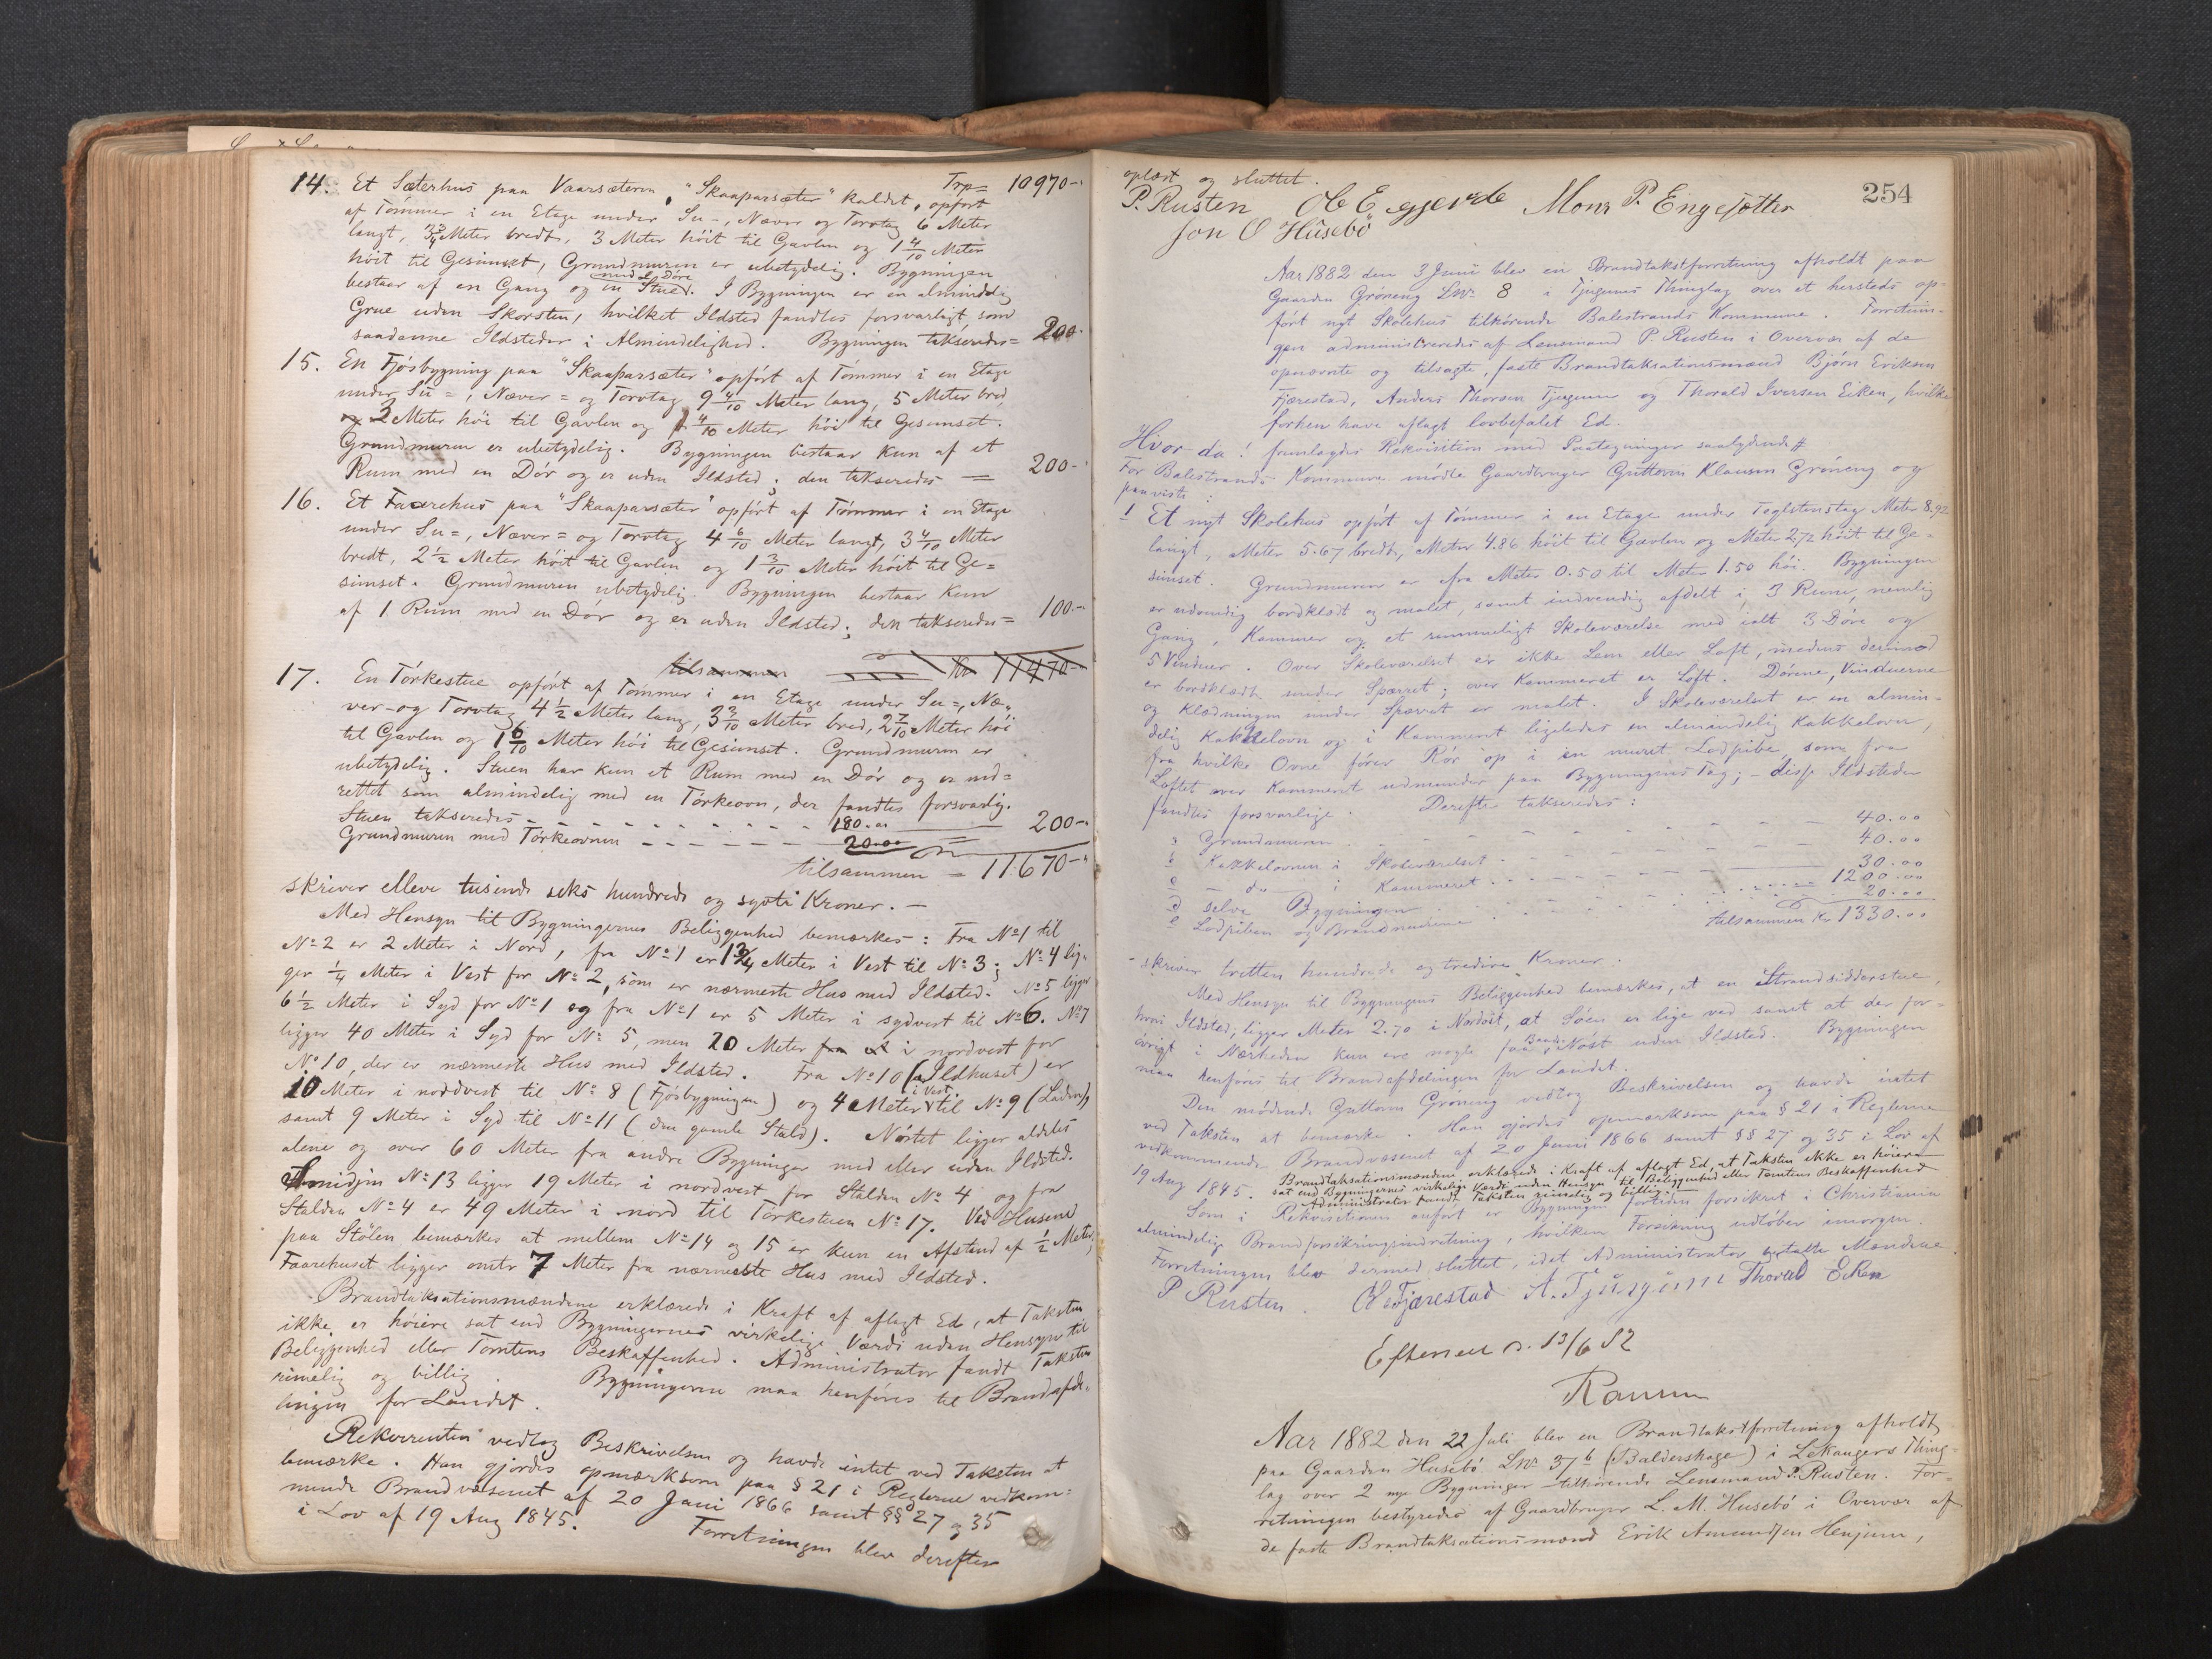 14. Et Sæterhus paa Vaarsæteren, "Skaaparsæter" kaldet, opført Trp= 10970-
af Tømmer i en Etage under Su-, Næver og Torvtag 6 Meter
langt, 3 3/4 Meter bredt, 3 Meter höit til Gavlen og 1 4/10 Meter
höit til Gesimset, Grundmuren er ubetydelig. Bygningen
med 2 Döre
bestaar af en Gang og en Stue. I Bygningen er en almindelig
Grue uden Skorsten, hvilket Ildsted fandtes forsvarligt, som
saadanne Ildsteder i Almindelighed. Bygningen takseredes= 200-
15. En Fjösbygning paa "Skaaparsæter" opfört af Tömmer i en Etage
under Su=, Næver= og Torvtag 9 4/10 Meter lang, 5 Meter bred,
og 3 Meter höi til Gavlen og 1 4/10 Meter höi til Gesimset.
Grundmuren er ubetydelig. Bygningen bestaar kun af et
Rum med en Dör og er uden Ildsted; den takseredes = 200-
16. Et Faarehus paa "Skaaparsæter" opfört af Tömmer i en Etage
under Su=, Næver= og Torvtag 4 6/10 Meter langt, 3 4/10 Meter
bredt, 2 1/2 Meter höit til Gavlen og 1 3/10 Meter höit til Ge=
simset. Grundmuren ubetydelig. Bygningen bestaar kun
af 1 Rum med en Dör og er uden Ildsted; den takseredes= 100-
tilsammen Kr 11470-
17. En Törkestue opfört af Tömmer i en Etage under Su=, Næ-
ver- og Torvtag 4 1/2 Meter lang, 3 3/10 Meter bred, 2 7/10 Meter höi
til Gavlen og 1 6/10 Meter höi til Gesimset. Grundmuren er
ubetydelig. Stuen har kun et Rum med en Dör og er ind=
rettet som almindelig med en Törkeovn, der fandtes forsvarlig.
Stuen takseredes - - - 180.00
Grundmuren med Törkeovnen - - - 20.00 200-
tilsammen = 11670-
skriver elleve tusende seks hundrede og sytti Kroner. -
Med Hensyn til Bygningernes Beliggenhed bemærkes: Fra No 1 til
No 2 er 2 Meter i Nord, fra No 1 er 1 3/4 Meter i Vest til No 3; No 4 lig-
ger 1/4 Meter i Vest for No 2, som er nærmeste Hus med Ildsted. No 5 ligger
6 1/2 Meter i Syd for No 1 og fra No 1 er 5 Meter i sydvest til No 6. No 7
ligger 40 Meter i Syd for No 5, men 20 Meter i nordvest for
No 10, der er nærmeste Hus med Ildsted. Fra No 10 (Ildhuset) er
i Vest
10 Meter i norddvest til No 8 (Fjösbygningen) og 4 Meter til No 9 (Laden)
samt 9 Meter i Syd til No 11 (den gamle Stald). Nöstet ligger aldeles
alene og over 60 Meter fra andre Bygninger med eller uden Ildsted.
Smidjen No 13 ligger 19 Meter i nordvest for Stalden No 4 og fra
Stalden No 4 er 49 Meter i nord til Törkestuen No 17. Ved Husene
paa Stölen bemærkes at mellem No 14 og 15 er kun en Afstand af 1/2 Meter,
Faarehuset ligger omtr 7 Meter fra nærmeste Hus med Ildsted.
Brandtaksationsmændene erklærede i Kraft af aflagt Ed, at Taksten
ikke er höiere sat end Bygningernes virkelige Værdi uden Hensyn til
Beliggenhed eller Tomtens Beskaffenhed. Administrator fandt Taksten
rimelig og billig. Bygningerne maa henföres til Brandafde-
lingen for Landet.
Rekvirenten vedtog Beskrivelsen og havde intet ved Taksten at
bemærke. Han gjordes opmærksom paa § 21 i Reglerne vedkom=
mende Brandvæsenet af 20 Juni 1866 samt §§ 27 og 35
i Lov af 19 Aug 1845. Forretningen blev derefter
254
oplæst og sluttet.
P. Rusten Ole E Eggjerde Mons P. Engesætter
Jon O Husebö
Aar 1882 den 3 Juni blev en Brandtakstforretning afholdt paa
Gaarden Gröneng LNr 8 i Tjugums Thinglag over et hersteds op-
fört nyt Skolehus tilhörende Balestrands Kommune. Forretnin-
gen administreredes af Lensmand P. Rusten i Overvær af de
opnævnte og tilsagte, faste Brandtaksationsmænd Björn Eriksen
Fjærestad, Anders Thorsen Tjugum og Thorald Iversen Eiken, hvilke
forhen have aflagt lovbefalet Ed.
Hvor da! fremlagdes Rekvisition med Paategninger saalydende #
For Balestrands Kommune mödte Gaardbruger Guttorm Klausen Gröneng og
paaviste:
1 Et nyt Skolehus opfört af Tömmer i en Etage under Teglstenstag Meter 8.92
langt, Meter 5.67 bredt, Meter 4.86 höit til Gavlen og Meter 2.72 höit til Ge-
simset. Grundmuren er fra Meter 0.50 til Meter 1.50 höi. Bygningen
er udvendig bordklædt og malet, samt indvendig afdelt i 3 Rum, nemlig
Gang, Kammer og et rummeligt Skoleværelse med ialt 3 Döre og
5 Vinduer. Over Skoleværelset er ikke Lem eller Loft, medens derimod
er bordklædt under Spærret; over Kammeret er Loft. Dörene, Vinduerne
og Klædningen under Spærret er malet. I Skoleværelset er en almin-
delig Kakkelovn og i Kammeret ligeledes en almindelig Kakkelovn,
fra hvilke Ovne förer Rör op i en muret Lodpibe, som fra
Loftet over Kammeret udmunder paa Bygningens Tag; - disse Ildsteder
fandtes forsvarlige. Derefter takseredes:
a Grundmuren - - - 40.00
b Kakkelovnen i Skoleværelset - - - 40.00
c - do - i Kammeret - - - 30.00
d selve Bygningen - - - 1200.00
e Lodpiben og Brandmuren - - - 20.00
tilsammen Kr 1330.00
- skriver tretten hundrede og tredive Kroner.
Med Hensyn til Bygningens Beliggenhed bemærkes, at en Strandsidderstue,
hvori Ildsted, ligger Meter 2.70 i Nordöst, at Söen er lige ved samt at der for-
Baad-
övrigt i Nærheden kun ere nogle faa Nöst uden Ildsted. Bygningen
maa henföres til Brandafdelingen for Landet.
Den mödende Guttorm Gröneng vedtog Beskrivelsen og havde intet
ved Taksten at bemærke. Han gjordes opmærksom paa § 21 i Reglerne
vedkommende Brandvæsenet af 20 Juni 1866 samt §§ 27 og 35 i Lov af
19 Aug 1845. Brandtaksationsmændene erklærede i Kraft af aflagt Ed, at Taksten ikke er höiere
sat end Bygningernes virkelige Værdi uden Hensyn til Beliggenhed eller Tomtens Beskaffenhed
Administrator fandt Taksten rimelig og billig.
Som i Rekvisitionen anfört er Bygningen fortiden forsikret i Christiania
almindelig Brandforsikringsindretning, hvilken Forsikring udlöber imorgen.
Forretningen blev dermed sluttet, idet Administrator betalte Mændene
P Rusten. B E Fjærestad A. T Tjugum Thorald Eiken
Efterseet d. 13/6 82
Aar 1882 den 22 Juli blev en Brandtakstforretning afholdt
paa Gaarden Husebö LNr 37 b (Baldershage) i Leikangers Thing-
lag over 2 nye Bygninger tilhörende Lensmand P. Rusten. For-
retningen bestyredes af Gaardbruger L. M. Husebö i Overvær af
de faste Brandtaksationsmænd Erik Amundsen Henjum,